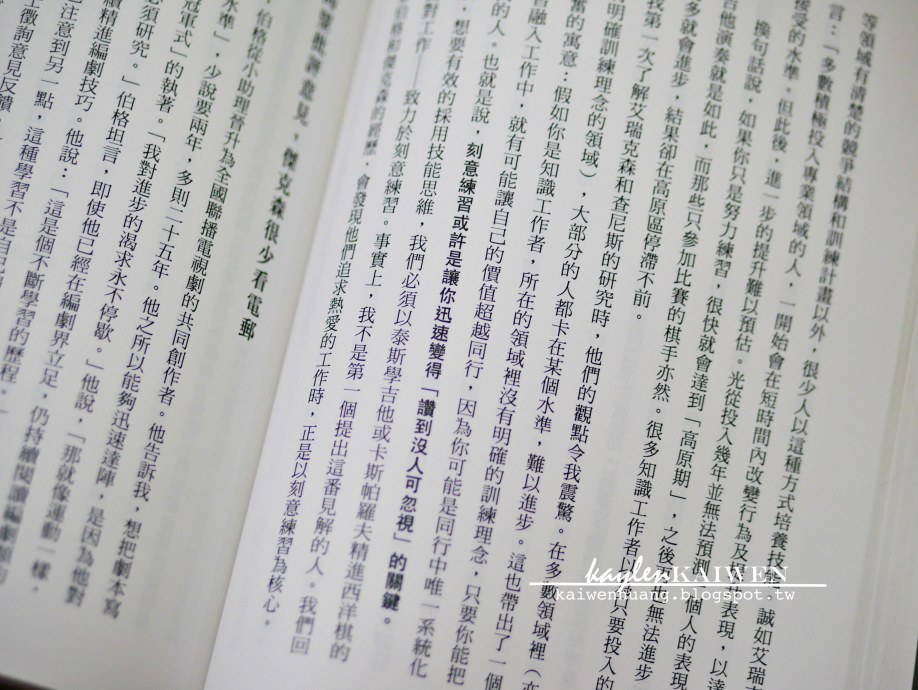 等領域有清楚的競爭結構和訓練計畫以外，很少人以這種方式培養技能。誠如艾瑞克
言：「多數積極投入專業領域的人，一開始會在短時間內改變行為及 表現，以達
接受的水準。但此後，進一步的提升難以預估。光從投入幾年並無法預測一個人的表現
換句話說，如果你只是努力練習，很快就會達到「高原期」，之後 無法進步
吉他演奏就是如此，而那些只參加比賽的棋手亦然。很多知識工作者 只要投入的
多就會進步，結果卻在高原區停滯不前。
我第一次了解艾瑞克森和查尼斯的研究時，他們的觀點令我震驚。在多數領域裡（
有明確訓練理念的領域），大部分的人都卡在某個水準，難以進步。這也帶出了一個
奮的寓意：假如你是知識工作者，所在的領域裡沒有明確的訓練理念，只要你能把
融入工作中，就有可能讓自己的價值超越同行，因為你可能是同行中唯一系統化
的人。也就是說，刻意練習或許是讓你迅速變得「讚到沒人可忽視」的關鍵。
想要有效的採用技能思維，我們必須以泰斯學吉他或卡斯帕羅夫精進西洋棋的
對工作——致力於刻意練習。事實上，我不是第一個提出這番見解的人。我們回
傑克森的經歷，會發現他們追求熱愛的工作時，正是以刻意練習為核心。
意見，傑克森很少看電郵
伯格從小助理晉升為全國聯播電視劇的共同創作者。他告訴我，想把劇本寫
水準」，少說要兩年，多則二十五年。他之所以能夠迅速達陣，是因為他對
冠軍式」的執著。「我對進步的渴求永不停歇。」他說，「那就像運動一樣，
必須研究。」伯格坦言，即使他已經在編劇界立足，仍持續閱讀編劇類的
續精進編劇技巧。他說：「這是個不斷學習的歷程。」
注意到另一點，這種學習不是自
徵詢意見反饋
kaylen KAIWEN
kaiwenhuang.blogspot.tw